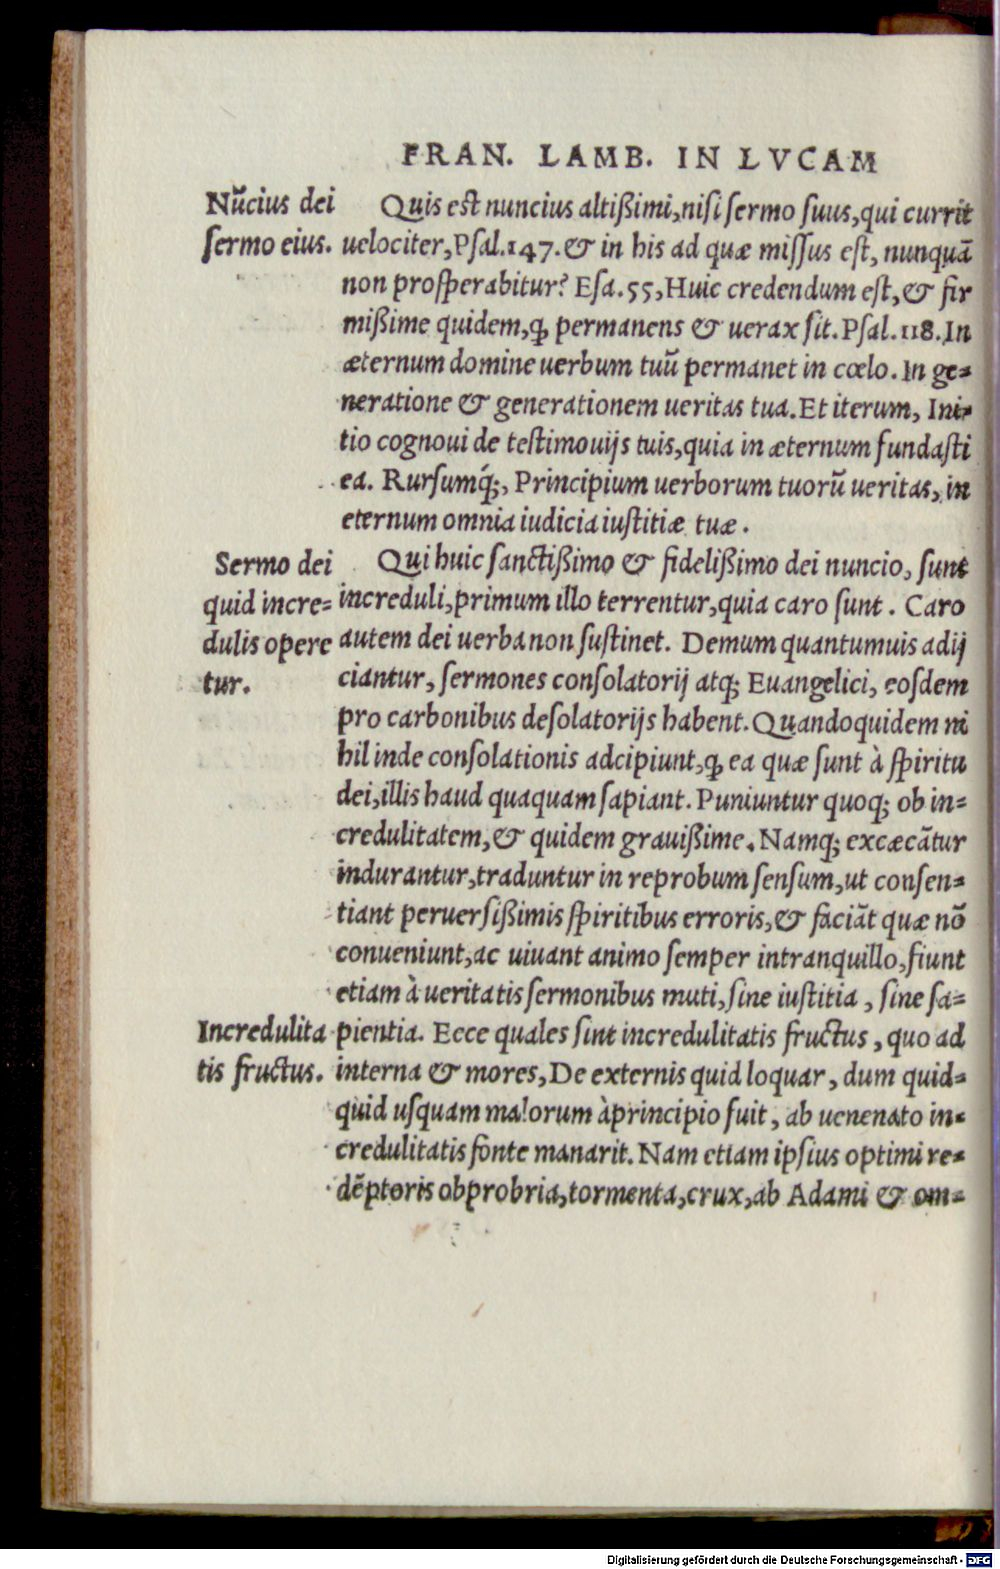 FRAN. LAMB. IN LVCAM
Nũcius dei
sermo eius.
Quis est nuncius altißimi, nisi sermo suus, qui currit
uelociter, Psal.147. & in his ad quæ missus est, nunquã
non prosperabitur? Esa.55, Huic credendum est, & fir
mißime quidem, ꝙ permanens & uerax sit. Psal.118. In
æternum domine uerbum tuũ permanet in cœlo. In ge=
neratione & generationem ueritas tua. Et iterum, Ini=
tio cognoui de testimouijs tuis, quia in æternum fundasti
ea. Rursumq́;, Principium uerborum tuorũ ueritas, in
eternum omnia iudicia iustitiæ tuæ.
Sermo dei
quid incre=
dulis opere
tur.
Qui huic sanctißimo & fidelißimo dei nuncio, sunt
increduli, primum illo terrentur, quia caro sunt. Caro
autem dei uerba non sustinet. Demum quantumuis adij
ciantur, sermones consolatorij atq; Euangelici, eosdem
pro carbonibus desolatorijs habent. Quandoquidem ni
hil inde consolationis adcipiunt, ꝙ ea quæ sunt à spiritu
dei, illis haud quaquam sapiant. Puniuntur quoq; ob in=
credulitatem, & quidem grauißime. Namq; excæcãtur
indurantur, traduntur in reprobum sensum, ut consen=
tiant peruersißimis spiritibus erroris, & faciãt quæ nõ
conueniunt, ac uiuant animo semper intranquillo, fiunt
etiam à ueritatis sermonibus muti, sine iustitia, sine sa=
Incredulita
tis fructus.
pientia. Ecce quales sint incredulitatis fructus, quo ad
interna & mores, De externis quid loquar, dum quid=
quid usquam malorum à principio fuit, ab uenenato in=
credulitatis fonte manarit. Nam etiam ipsius optimi re=
dẽptoris obprobria, tormenta, crux, ab Adami & om=
Digitalisierung gefördert durch die Deutsche Forschungsgemeinschaft - DFG